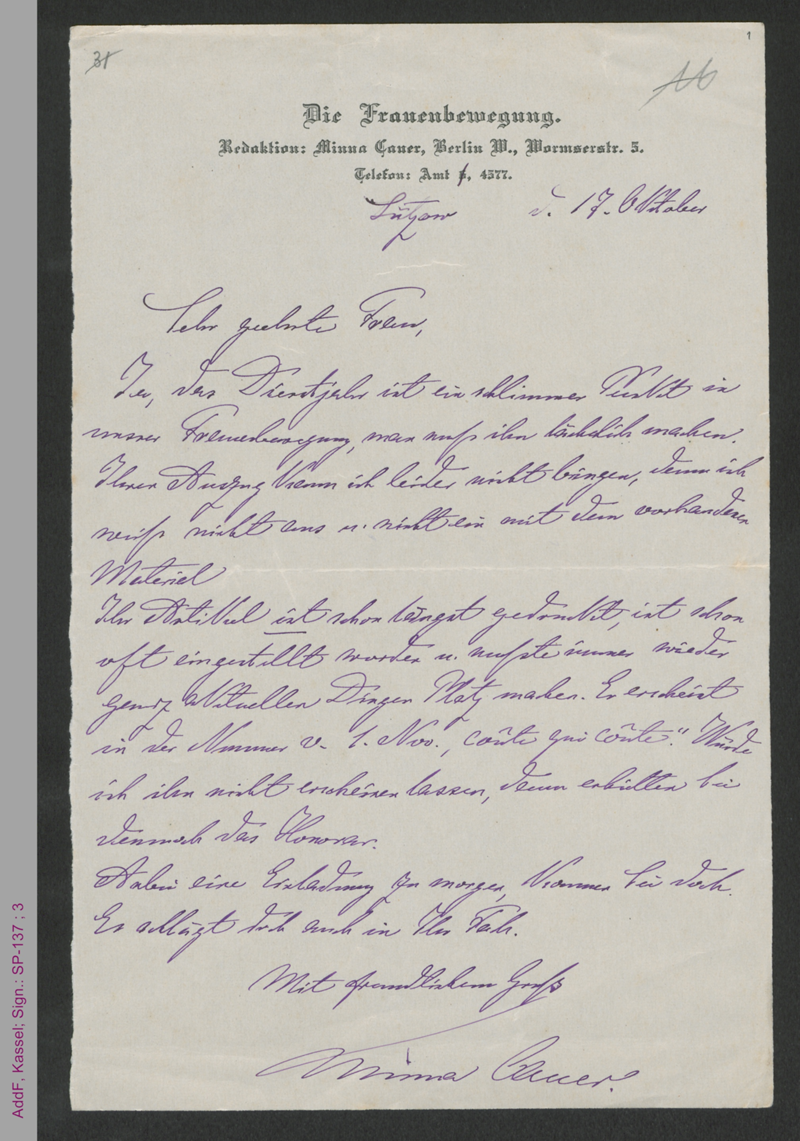 1
31
Die Frauenbewegung.
Redaktion: Minna Cauer, Berlin W., Wormserstr. 5.
Telefon: Amt 6, 4577.
Lützow d. 17. Oktober
Sehr geehrte Frau,
Ja, das Dienstjahr ist ein schlimmer Punkt in
unserer Frauenbewegung, man muß ihn lächerlich machen.
Ihren Auszug kann ich leider nicht bringen, denn ich
weiß nicht aus u. nicht ein mit dem vorhandenen
Material
Ihr Artikel ist schon längst gedruckt, ist schon
oft eingestellt worden u. mußte immer wieder
ganz aktuellen Dingen Platz machen. Er erscheint
in der Nummer v. 1. Nov. „coûte que coûte." Würde
ich ihn nicht erscheinen lassen, dann erhielten Sie
dennoch das Honorar.
Anbei eine Einladung zu morgen, kommen Sie doch.
Es schlägt doch auch in Ihr Fach.
Mit freundlichem Gruß
Minna Cauer.
AddF, Kassel; Sign.: SP-137 ; 3